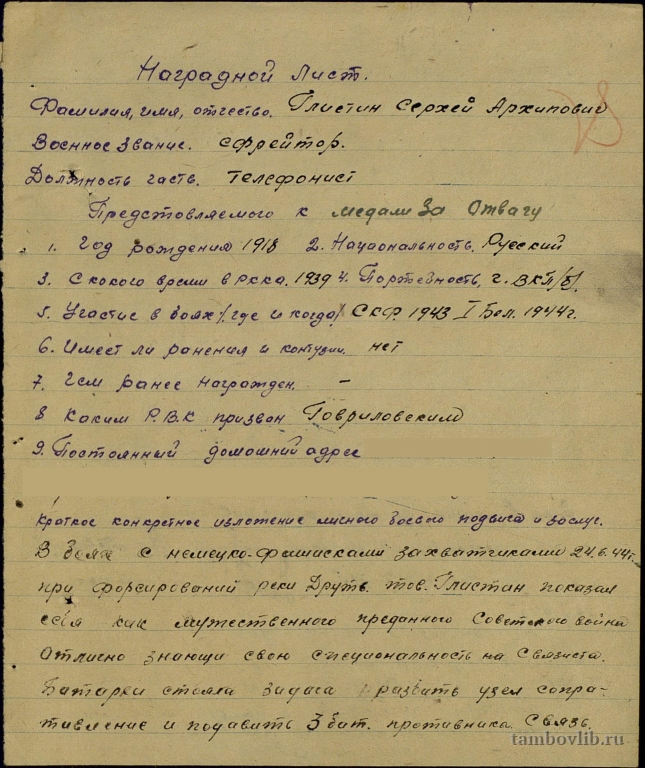 Наградной лист.
Фамилия, имя, отчество. Глистин Сергей Архипович
Военное звание. ефрейтор.
Должность часть. телефонист
Представляемого к медали За Отвагу
1. Год рождения 1918 2. Национальность. Русский
3. С какого время в РККА. 1939 4. Партейность, ч. ВКП/б/.
5. Участие в боях /где и когда/ СКФ. 1943 I Бел. 1944 г.
6. Имеет ли ранения и контузии. нет
7. Чем ранее награжден. –
8 Каким Р.В.К призван Гавриловским
9. Постоянный домашний адрес
Краткое конкретное изложение личного боевого подвига и заслуг.
В боях с немецко-фашисками захватчиками 24.6.44 г.
при форсирований реки Друть. тов. Глистин показал
себя как мужественного преданного Советского война
отлично знающи свою специальность на связиста.
Батарки стояла задача развить узел сопра-
тивление и подавить 3 бат. противника. Связь.
tambovlib.ru